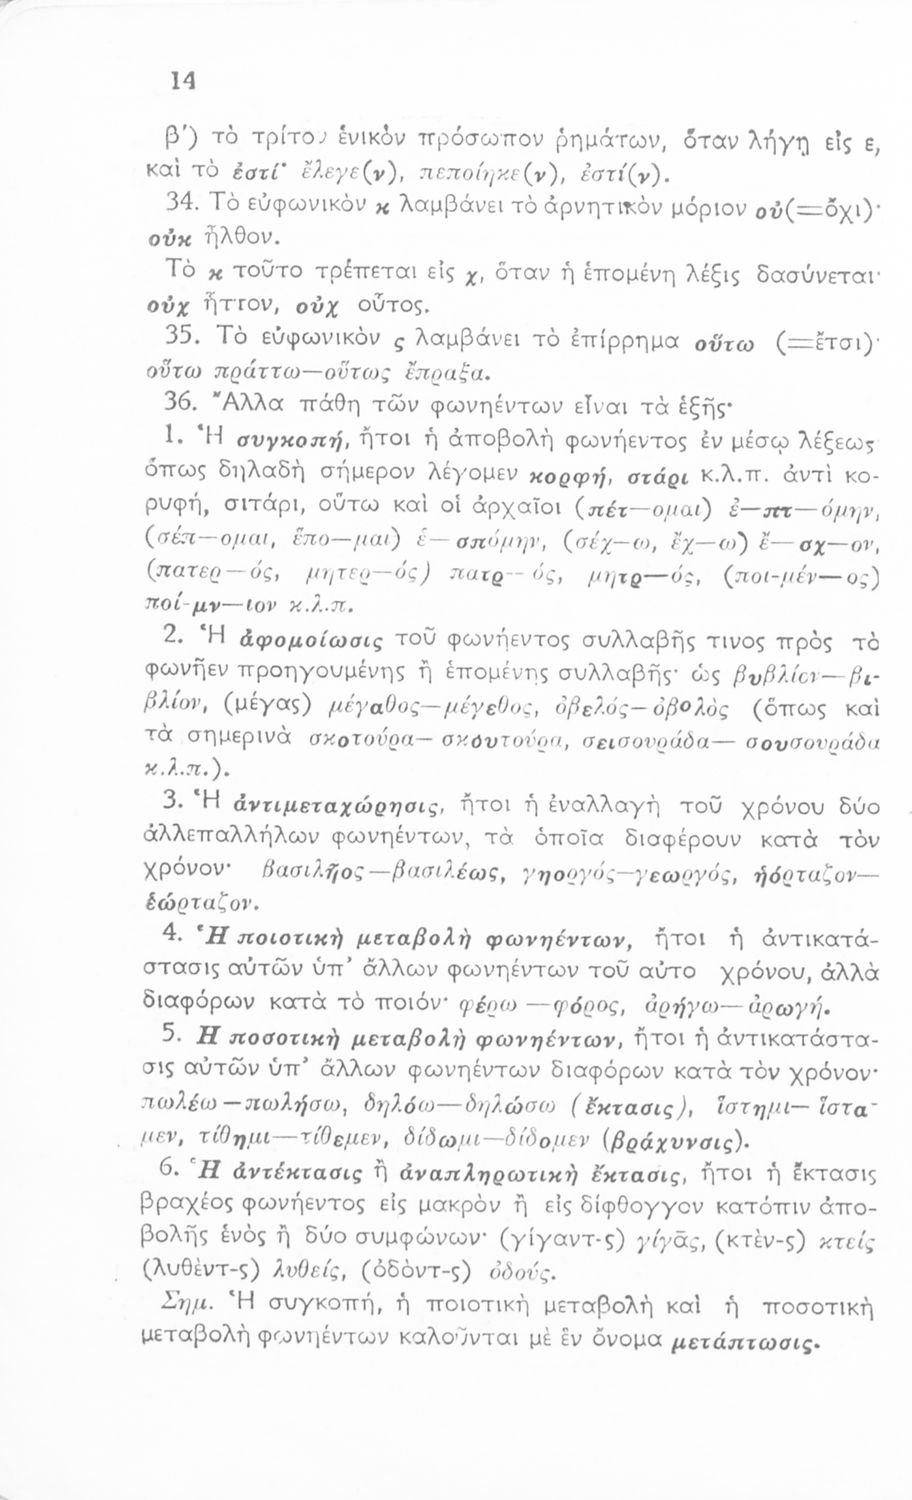 14
β') τὸ τρίτον ἑνικὸν πρόσωπον ῥημάτων, ὅταν λήγῃ εἰς ε,
καὶ τὸ ἐστί· ἔλεγε(ν), πεποίηκε(ν), ἐστί(ν).
34. Τὸ εὐφωνικὸν κ λαμβάνει τὸ ἀρνητικὸν μόριον οὐ(=ὄχι)·
οὐκ ἦλθον.
Τὸ κ τοῦτο τρέπεται εἰς χ, ὅταν ἡ ἑπομένη λέξις δασύνεται·
οὐχ ἧττον, οὐχ οὗτος.
35. Τὸ εὐφωνικὸν ς λαμβάνει τὸ ἐπίρρημα οὕτω (=ἔτσι)·
οὕτω πράττω—οὕτως ἔπραξα.
36. Ἄλλα πάθη τῶν φωνηέντων εἶναι τὰ ἑξῆς·
1. Ἡ συγκοπή, ἤτοι ἡ ἀποβολὴ φωνήεντος ἐν μέσῳ λέξεως
ὅπως δηλαδὴ σήμερον λέγομεν κορφή, στάρι κ.λ.π. ἀντὶ κο-
ρυφή, σιτάρι, οὕτω καὶ οἱ ἀρχαῖοι (πέτ—ομαι) ἐ—πτ—όμην,
(σέπ—ομαι, ἕπο—μαι) ἑ—σπόμην, (σέχ—ω, ἔχ—ω) ἔ—σχ—ον,
(πατερ—ός, μητερ—ός) πατρ—ός, μητρ—ός, (ποι-μέν—ος)
ποί-μν—ιον κ.λ.π.
2. Ἡ ἀφομοίωσις τοῦ φωνήεντος συλλαβῆς τινος πρὸς τὸ
φωνῆεν προηγουμένης ἢ ἑπομένης συλλαβῆς· ὡς βυβλίον—βι-
βλίον, (μέγας) μέγαθος—μέγεθος, ὀβελός—ὀβολὸς (ὅπως καὶ
τὰ σημερινὰ σκοτούρα—σκουτούρα, σεισουράδα—σουσουράδα
κ.λ.π.).
3. Ἡ ἀντιμεταχώρησις, ἤτοι ἡ ἐναλλαγὴ τοῦ χρόνου δύο
ἀλλεπαλλήλων φωνηέντων, τὰ ὁποῖα διαφέρουν κατὰ τὸν
χρόνον· βασιλῆος—βασιλέως, γηοργός—γεωργός, ἠόρταζον—
ἑώρταζον.
4. Ἡ ποιοτικὴ μεταβολὴ φωνηέντων, ἤτοι ἡ ἀντικατά-
στασις αὐτῶν ὑπ' ἄλλων φωνηέντων τοῦ αὐτο χρόνου, ἀλλὰ
διαφόρων κατὰ τὸ ποιόν· φέρω —φόρος, ἀρήγω—ἀρωγή.
5. Η ποσοτικὴ μεταβολὴ φωνηέντων, ἤτοι ἡ ἀντικατάστα-
σις αὐτῶν ὑπ' ἄλλων φωνηέντων διαφόρων κατὰ τὸν χρόνον·
πωλέω—πωλήσω, δηλόω—δηλώσω (ἔκτασις), ἵστημι—ἵστα-
μεν, τίθημι—τίθεμεν, δίδωμι—δίδομεν (βράχυνσις).
6. Ἡ ἀντέκτασις ἢ ἀναπληρωτικὴ ἔκτασις, ἤτοι ἡ ἔκτασις
βραχέος φωνήεντος εἰς μακρὸν ἢ εἰς δίφθογγον κατόπιν ἀπο-
βολῆς ἑνὸς ἢ δύο συμφώνων· (γίγαντ-ς) γίγᾱς, (κτὲν-ς) κτείς
(λυθὲντ-ς) λυθείς, (ὀδὸντ-ς) ὀδούς.
Σημ. Ἡ συγκοπή, ἡ ποιοτικὴ μεταβολὴ καὶ ἡ ποσοτικὴ
μεταβολὴ φωνηέντων καλοῦνται μὲ ἓν ὄνομα μετάπτωσις.